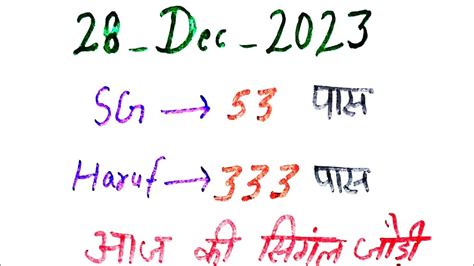 28-Dec-2023
SG → 53 पास
Haruf → 333 पास
आज की सिगंल जोड़ी